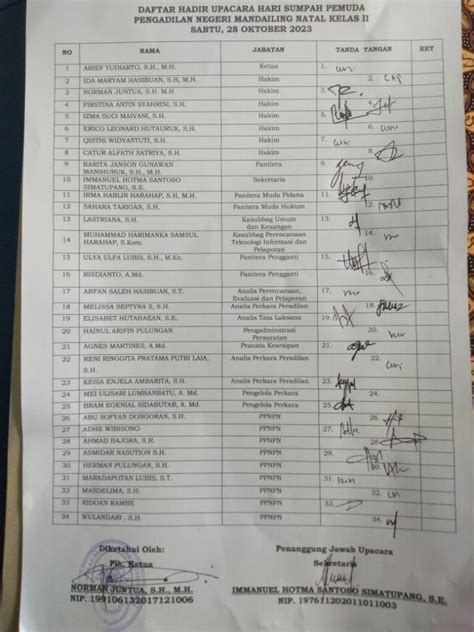 DAFTAR HADIR UPACARA HARI SUMPAH PEMUDA
PENGADILAN NEGERI MANDAILING NATAL KELAS II
SABTU, 28 OKTOBER 2023
NO NAMA JABATAN TANDA TANGAN KET
1 ARIEF YUDIARTO, S.H., M.H. Ketua 1.
2 IDA MARYAM HASIBUAN, S.H., M.H. Hakim 2.
3 NORMAN JUNTUA, S.H. M.H Hakim 3.
4 FIRSTINA ANTIN SYAHRINI, S.H. Hakim 4.
5 IZMA SUCI MAIVANI, S.H. Hakim 5.
6 ERICO LEONARD HUTAURUK, S.H. Hakim 6.
7 QISTHI WIDYASTUTI, S.H. Hakim 7.
8 CATUR ALFATH SATRIYA, S.H. Hakim 8.
9 BARITA JANSON GUNAWAN MANIHURUK, S.H., M.H. Panitera 9.
10 IMMANUEL HOTMA SANTOSO SIMATUPANG, S.E. Sekretaris 10.
11 IRMA HABLIN HARAHAP, S.H, M.H. Panitera Muda Pidana 11.
12 SAHARA TARIGAN, S.H. Panitera Muda Hukum 12.
13 LASTRIANA, S.H. Kasubbag Umum dan Keuangan 13.
14 MUHAMMAD HARIMANKA SAMSUL HARAHAP, S.Kom. Kasubbag Perencanaan Teknologi Informasi dan Pelaporan 14.
15 ULYA ULFA LUBIS, S.H., M.Kn. Panitera Pengganti 15.
16 RISDIANTO, A.Md. Panitera Pengganti 16.
17 ARFAN SALEH HASIBUAN, S.T. Analis Perencanaan, Evaluasi dan Pelaporan 17.
18 MELISSA SEPTYNA S, S.H. Analis Perkara Peradilan 18.
19 ELISABET HUTAHAEAN, S.E. Analis Tata Laksana 19.
20 HAINUL ARIFIN PULUNGAN Pengadministrasi Persuratan 20.
21 AGNES MARTINES, A.Md. Pranata Kearsipan 21.
22 RENI RINGGITA PRATAMA PUTRI LAIA, S.H. Analis Perkara Peradilan 22.
23 KESIA ENJELA AMBARITA, S.H. Analis Perkara Peradilan 23.
24 MEI ULISARI LUMBANBATU, A. Md. Pengelola Perkara 24.
25 BRAM EGENIAL SIDABUTAR, A. Md. Pengelola Perkara 25.
26 ABU SOFYAN DONGORAN, S.H. PPNPN 26.
27 ADHE WIBISONO PPNPN 27.
28 AHMAD BAJORA, S.H. PPNPN 28.
29 ASMIDAR NASUTION S.H. PPNPN 29.
30 HERMAN PULUNGAN, S.H. PPNPN 30.
31 MARADAPOTAN LUBIS, S.T. PPNPN 31.
32 MASDELIMA, S.H. PPNPN 32.
33 RIDOAN RAMBE PPNPN 33.
34 WULANDARI, S.H. PPNPN 34.
Diketahui Oleh: Penanggung Jawab Upacara
Plh. Ketua Sekretaris
NORMAN JUNTUA, S.H., M.H. IMMANUEL HOTMA SANTOSO SIMATUPANG, S.E.
NIP. 199106132017121006 NIP. 197612202011011003